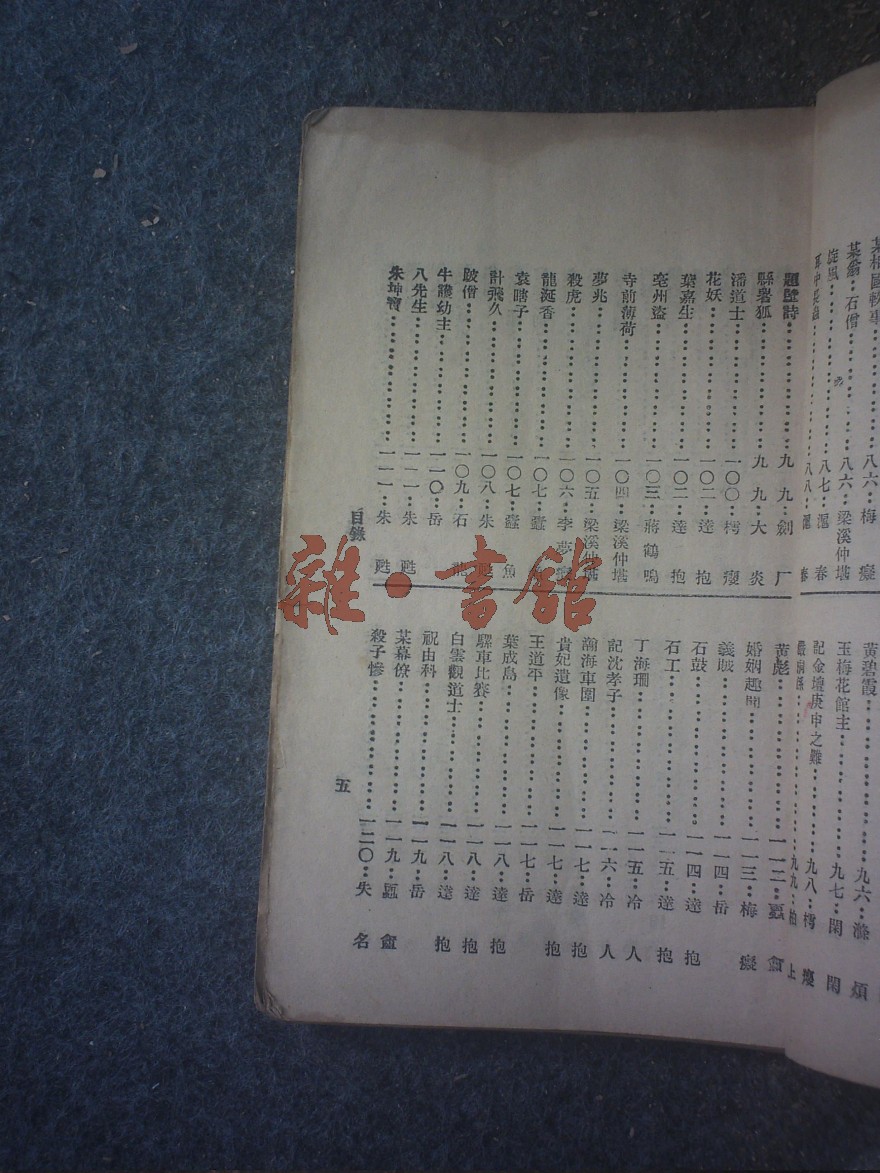 某相國軼事……八六‥梅癡
某翁 石僧……八六‥梁溪仲堪
旋風……八七‥滬春
八八‥滬春
題壁詩……九九‥劍厂
縣署狐……九九‥大炎
潘道士……一〇〇‥樗癭
花妖……一〇二‥達抱
葉嘉生……一〇二‥達抱
亳州盜……一〇三‥蔣鶴鳴
寺前薄荷……一〇四‥梁溪仲堪
夢兆……一〇五‥梁溪仲堪
殺虎……一〇六‥李夢
龍涎香……一〇七‥蠹
袁瞎子……一〇七‥蠹魚
計飛久……一〇八‥朱甦
跛僧……一〇九‥石
牛護幼主……一一〇‥岳
八先生……一一一‥朱甦
朱坤寶……一一一‥朱甦
目錄
黃碧霞……九六‥滌煩
玉梅花館主……九七‥閑閑
記金壇庚申之難……九八‥樗癭
九九‥柏上
黃彪……一一二‥蠶盦
婚姻趣聞……一一三‥梅癡
義賊……一一四‥岳
石鼓……一一四‥達抱
石工……一一五‥達抱
丁海珊……一一五‥冷人
記沈孝子……一一六‥冷人
瀚海車圍……一一七‥達抱
貴妃遺像……一一七‥達抱
王道平……一一七‥岳
葉成鳥……一一八‥達抱
騾車比賽……一一八‥達抱
白雲觀道士……一一八‥達抱
祝由科……一一九‥岳
某幕僚……一一九‥盦
殺子慘……一二〇‥失名
五
雜·書館